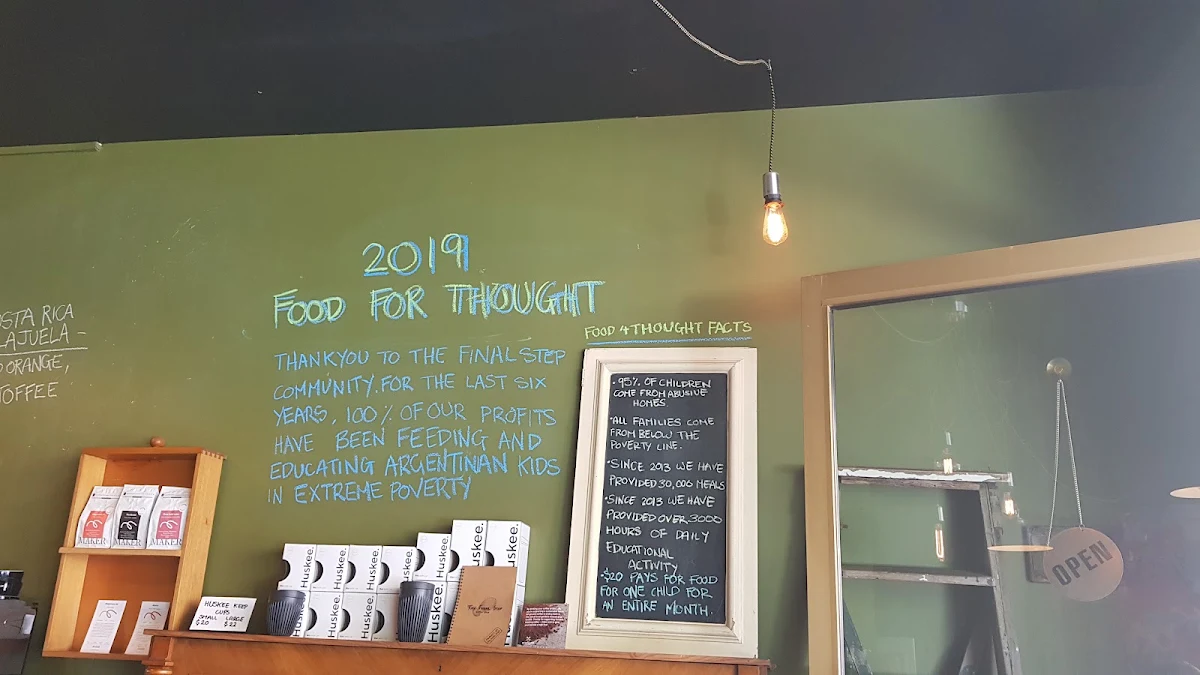 2019
FOOD FOR THOUGHT
THANKYOU TO THE FINAL STEP
COMMUNITY. FOR THE LAST SIX
YEARS, 100% OF OUR PROFITS
HAVE BEEN FEEDING AND
EDUCATING ARGENTINIAN KIDS
IN EXTREME POVERTY
STA RICA
LAJUELA -
ORANGE,
TOFFEE
FOOD 4 THOUGHT FACTS
• 95% OF CHILDREN
COME FROM ABUSIVE
HOMES
• ALL FAMILIES COME
FROM BELOW THE
POVERTY LINE.
• SINCE 2013 WE HAVE
PROVIDED 30,000 MEALS
• SINCE 2013 WE HAVE
PROVIDED OVER 3000
HOURS OF DAILY
EDUCATIONAL
ACTIVITY
• $20 PAYS FOR FOOD
FOR ONE CHILD FOR
AN ENTIRE MONTH.
OPEN
MAKER
MAKER
MAKER
HUSKEE KEEP
CUPS
SMALL LARGE
$20 $22
Huskee.
Huskee.
Huskee.
Huskee.
Huskee.
Huskee.
Huskee.
Huskee.
Huskee.
Huskee.
THE FINAL STEP